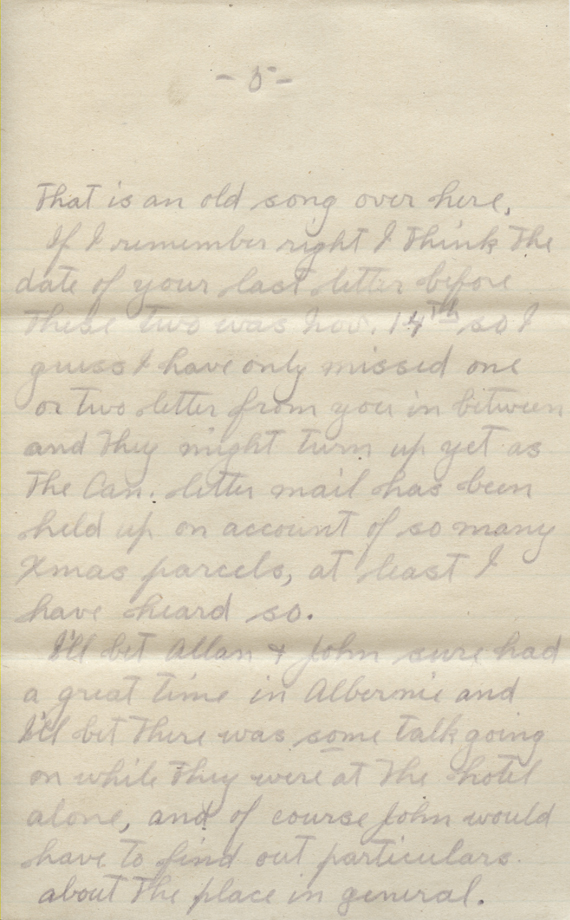 - 5 -
That is an old song over here.
If I remember right I think the
date of your last letter before
these two was Nov. 14th so I
guess I have only missed one
or two letter from you in between
and they might turn up yet as
the Can. letter mail has been
held up on account of so many
Xmas parcels, at least I
have heard so.
I'll bet Allan & John sure had
a great time in Albernie and
I'll bet there was some talk going
on while they were at the hotel
alone, and of course John would
have to find out particulars
about the place in general.